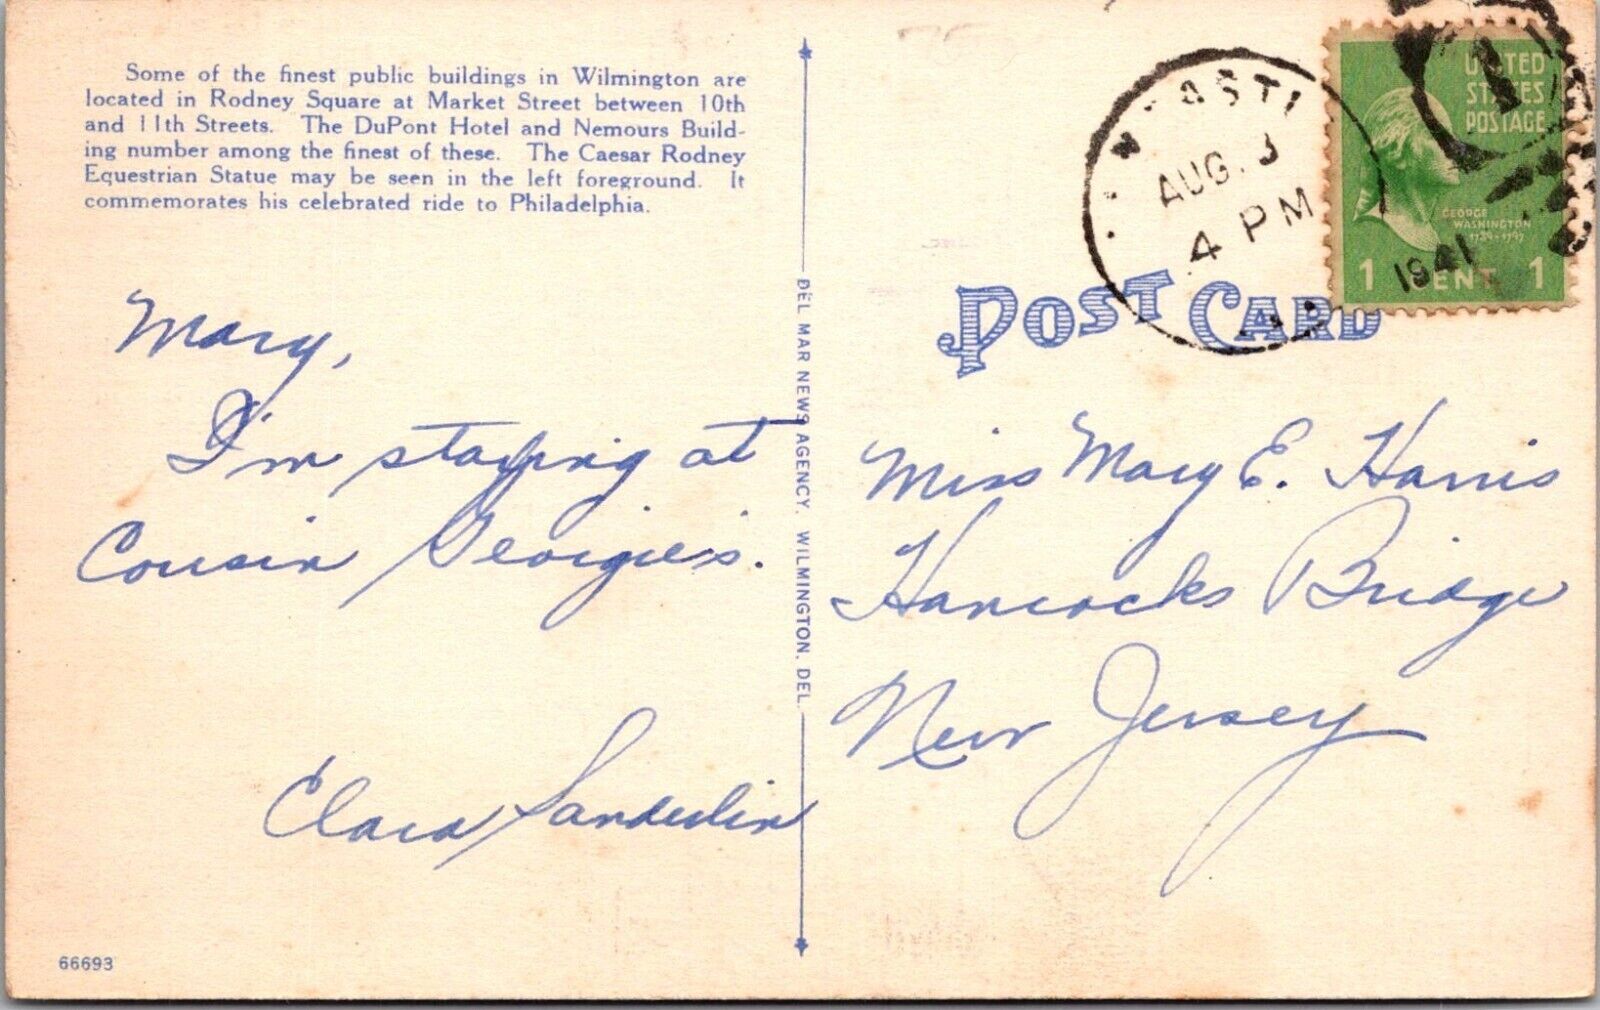 Some of the finest public buildings in Wilmington are
located in Rodney Square at Market Street between 10th
and 11th Streets. The DuPont Hotel and Nemours Build-
ing number among the finest of these. The Caesar Rodney
Equestrian Statue may be seen in the left foreground. It
commemorates his celebrated ride to Philadelphia.
Mary,
I'm staying at
Cousin Georgie's.
Clara Sanderlin
66693
DEL MAR NEWS AGENCY, WILMINGTON, DEL.
AUG. 3
4 PM
1941
UNITED
STATES
POSTAGE
GEORGE
WASHINGTON
1789-1797
1 CENT 1
POST CARD
Miss Mary E. Harris
Hancocks Bridge
New Jersey